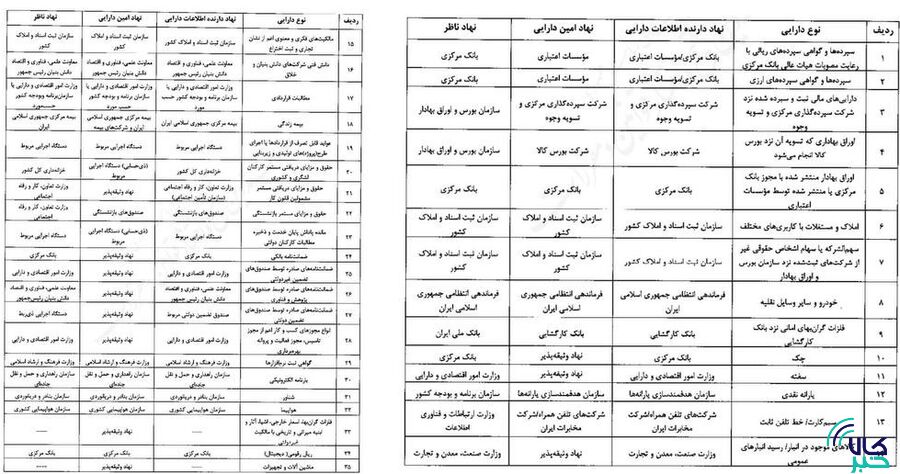 ردیف	نوع دارایی	نهاد دارنده اطلاعات دارایی	نهاد امین دارایی	نهاد ناظر
۱	سپرده‌ها و گواهی سپرده‌های ریالی با رعایت مصوبات هیات عالی بانک مرکزی	بانک مرکزی/مؤسسات اعتباری	مؤسسات اعتباری	بانک مرکزی
۲	سپرده‌ها و گواهی سپرده‌های ارزی	بانک مرکزی/مؤسسات اعتباری	مؤسسات اعتباری	بانک مرکزی
۳	دارایی‌های مالی ثبت و سپرده شده نزد شرکت سپرده‌گذاری مرکزی و تسویه وجوه	شرکت سپرده‌گذاری مرکزی و تسویه وجوه	شرکت سپرده‌گذاری مرکزی و تسویه وجوه	سازمان بورس و اوراق بهادار
۴	اوراق بهاداری که تسویه آن نزد بورس کالا انجام می‌شود	شرکت بورس کالا	شرکت بورس کالا	سازمان بورس و اوراق بهادار
۵	اوراق بهادار منتشر شده با مجوز بانک مرکزی یا منتشر شده توسط مؤسسات اعتباری	بانک مرکزی	بانک مرکزی	بانک مرکزی
۶	املاک و مستغلات با کاربری‌های مختلف	سازمان ثبت اسناد و املاک کشور	سازمان ثبت اسناد و املاک کشور	سازمان ثبت اسناد و املاک کشور
۷	سهم‌الشرکه یا سهام اشخاص حقوقی غیر از شرکت‌های ثبت‌شده نزد سازمان بورس و اوراق بهادار	سازمان ثبت اسناد و املاک کشور	سازمان ثبت اسناد و املاک کشور	سازمان ثبت اسناد و املاک کشور
۸	خودرو و سایر وسایل نقلیه	فرماندهی انتظامی جمهوری اسلامی ایران	فرماندهی انتظامی جمهوری اسلامی ایران	فرماندهی انتظامی جمهوری اسلامی ایران
۹	فلزات گران‌بهای امانی نزد بانک کارگشایی	بانک کارگشایی	بانک کارگشایی	بانک ملی ایران
۱۰	چک	بانک مرکزی	نهاد وثیقه‌پذیر	بانک مرکزی
۱۱	سفته	وزارت امور اقتصادی و دارایی	نهاد وثیقه‌پذیر	وزارت امور اقتصادی و دارایی
۱۲	یارانه نقدی	سازمان هدفمندسازی یارانه‌ها	سازمان هدفمندسازی یارانه‌ها	سازمان برنامه و بودجه کشور
۱۳	سیم‌کارت/ خط تلفن ثابت	شرکت‌های تلفن همراه/شرکت مخابرات ایران	شرکت‌های تلفن همراه/شرکت مخابرات ایران	وزارت ارتباطات و فناوری اطلاعات
کالاهای موجود در انبار/ رسید انبارهای عمومی	وزارت صنعت، معدن و تجارت	نهاد وثیقه‌پذیر	وزارت صنعت، معدن و تجارت
کالا خبر
ردیف	نوع دارایی	نهاد دارنده اطلاعات دارایی	نهاد امین دارایی	نهاد ناظر
۱۵	مالکیت‌های فکری و معنوی اعم از نشان تجاری و ثبت اختراع	سازمان ثبت اسناد و املاک کشور	سازمان ثبت اسناد و املاک کشور	سازمان ثبت اسناد و املاک کشور
۱۶	دانش فنی شرکت‌های دانش بنیان و خلاق	معاونت علمی، فناوری و اقتصاد دانش بنیان رئیس جمهور	معاونت علمی، فناوری و اقتصاد دانش بنیان رئیس جمهور	معاونت علمی، فناوری و اقتصاد دانش بنیان رئیس جمهور
۱۷	مطالبات قراردادی	وزارت امور اقتصادی و دارایی یا سازمان برنامه و بودجه کشور حسب مورد	وزارت امور اقتصادی و دارایی یا سازمان برنامه و بودجه کشور حسب مورد	وزارت امور اقتصادی و دارایی یا سازمان‌برنامه وبودجه کشور حسب‌مورد
۱۸	بیمه زندگی	بیمه مرکزی جمهوری اسلامی ایران	بیمه مرکزی جمهوری اسلامی ایران و شرکت‌های بیمه	بیمه مرکزی جمهوری اسلامی ایران
۱۹	عواید قابل تصرف از قراردادها یا اجرای طرح(پروژه)های تولیدی و زیربنایی	دستگاه اجرایی مربوط	دستگاه اجرایی مربوط	دستگاه اجرایی مربوط
۲۰	حقوق و مزایای دریافتی مستمر کارکنان لشگری و کشوری	خزانه‌داری کل کشور	(ذی‌حسابی) دستگاه اجرایی مربوط	خزانه‌داری کل کشور
۲۱	حقوق و مزایای دریافتی مستمر مشمولین قانون کار	وزارت تعاون، کار و رفاه اجتماعی (سازمان تأمین اجتماعی)	نهاد وثیقه‌پذیر	وزارت تعاون، کار و رفاه اجتماعی
۲۲	حقوق و مزایای بازنشستگی	صندوق‌های بازنشستگی	صندوق‌های بازنشستگی	وزارت تعاون، کار و رفاه اجتماعی
۲۳	مانده پاداش پایان خدمت و ذخیره مطالبات کارکنان دولتی	دستگاه اجرایی مربوط	(ذی‌حسابی) دستگاه اجرایی مربوط	دستگاه اجرایی مربوط
۲۴	ضمانت‌نامه بانکی	بانک مرکزی	نهاد وثیقه‌پذیر	بانک مرکزی
۲۵	ضمانت‌نامه‌های صادره توسط صندوق‌های تضمین غیردولتی	وزارت امور اقتصادی و دارایی	نهاد وثیقه‌پذیر	وزارت امور اقتصادی و دارایی
۲۶	ضمانت‌نامه‌های صادره توسط صندوق‌های پژوهش و فناوری	معاونت علمی، فناوری و اقتصاد دانش بنیان رئیس جمهور	نهاد وثیقه‌پذیر	معاونت علمی، فناوری و اقتصاد دانش بنیان رئیس‌جمهور
۲۷	ضمانت‌نامه‌های صادره توسط صندوق‌های تضمین دولتی	صندوق تضمین دولتی مربوط	نهاد وثیقه‌پذیر	دستگاه اجرایی ذی‌ربط
۲۸	انواع مجوزهای کسب و کار اعم از مجوز تاسیس، مجوز فعالیت و پروانه بهره‌برداری	وزارت امور اقتصادی و دارایی	نهاد وثیقه‌پذیر	وزارت امور اقتصادی و دارایی
۲۹	گواهی ثبت نرم‌افزارها	وزارت فرهنگ و ارشاد اسلامی	وزارت فرهنگ و ارشاد اسلامی	وزارت فرهنگ و ارشاد اسلامی
۳۰	بارنامه الکترونیکی	سازمان راهداری و حمل و نقل جاده‌ای	سازمان راهداری و حمل و نقل جاده‌ای	سازمان راهداری و حمل و نقل جاده‌ای
۳۱	شناور	سازمان بنادر و دریانوردی	سازمان بنادر و دریانوردی	سازمان بنادر و دریانوردی
۳۲	هواپیما	سازمان هواپیمایی کشوری	سازمان هواپیمایی کشوری	سازمان هواپیمایی کشوری
۳۳	فلزات گران‌بها، اسعار خارجی، اشیاء، آثار و ابنیه میراثی و تاریخی با مالکیت غیردولتی	نهاد وثیقه‌پذیر
۳۴	ریال رقومی (دیجیتال)	بانک مرکزی	بانک مرکزی	بانک مرکزی
۳۵	ماشین آلات و تجهیزات	نهاد وثیقه‌پذیر